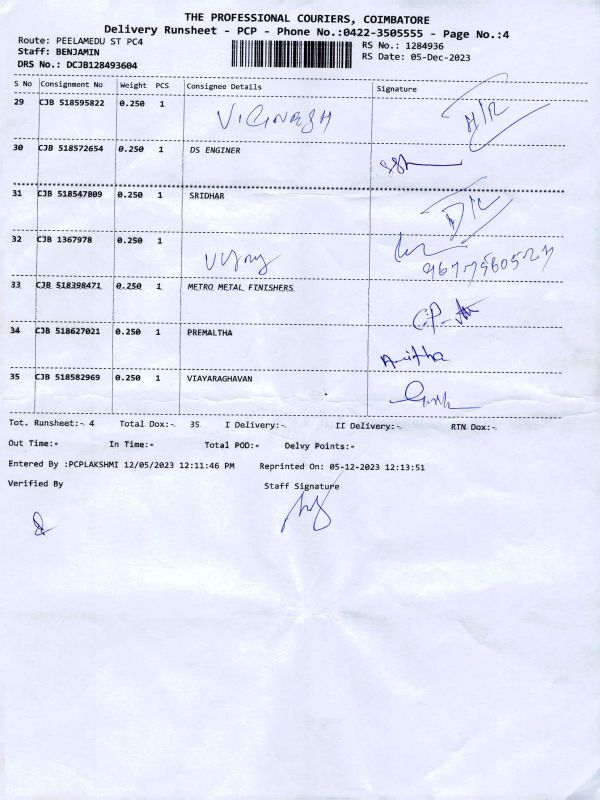 THE PROFESSIONAL COURIERS, COIMBATORE
Delivery Runsheet - PCP - Phone No.:0422-3505555 - Page No.:4
Route: PEELAMEDU ST PC4
RS No.: 1284936
Staff: BENJAMIN
RS Date: 05-Dec-2023
DRS No.: DCJB128493604
S No Consignment No Weight PCS Consignee Details Signature
29 CJB 518595822 0.250 1
30 CJB 518572654 0.250 1 DS ENGINER
31 CJB 518547809 0.250 1 SRIDHAR
32 CJB 1367978 0.250 1
33 CJB 518398471 0.250 1 METRO METAL FINISHERS
34 CJB 518627021 0.250 1 PREMALTHA
Anitha
35 CJB 518582969 0.250 1 VIAYARAGHAVAN
Tot. Runsheet:- 4 Total Dox:- 35 I Delivery:- II Delivery:- RTN Dox:-
Out Time:- In Time:- Total POD:- Delvy Points:-
Entered By :PCPLAKSHMI 12/05/2023 12:11:46 PM Reprinted On: 05-12-2023 12:13:51
Verified By Staff Signature